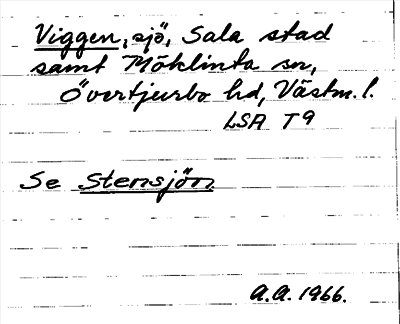 Viggen, sjö, Sala stad
samt Möklinta sn,
Övertjurbo hd, Västm. l.
LSA T9
Se Stensjön
A.A. 1966.